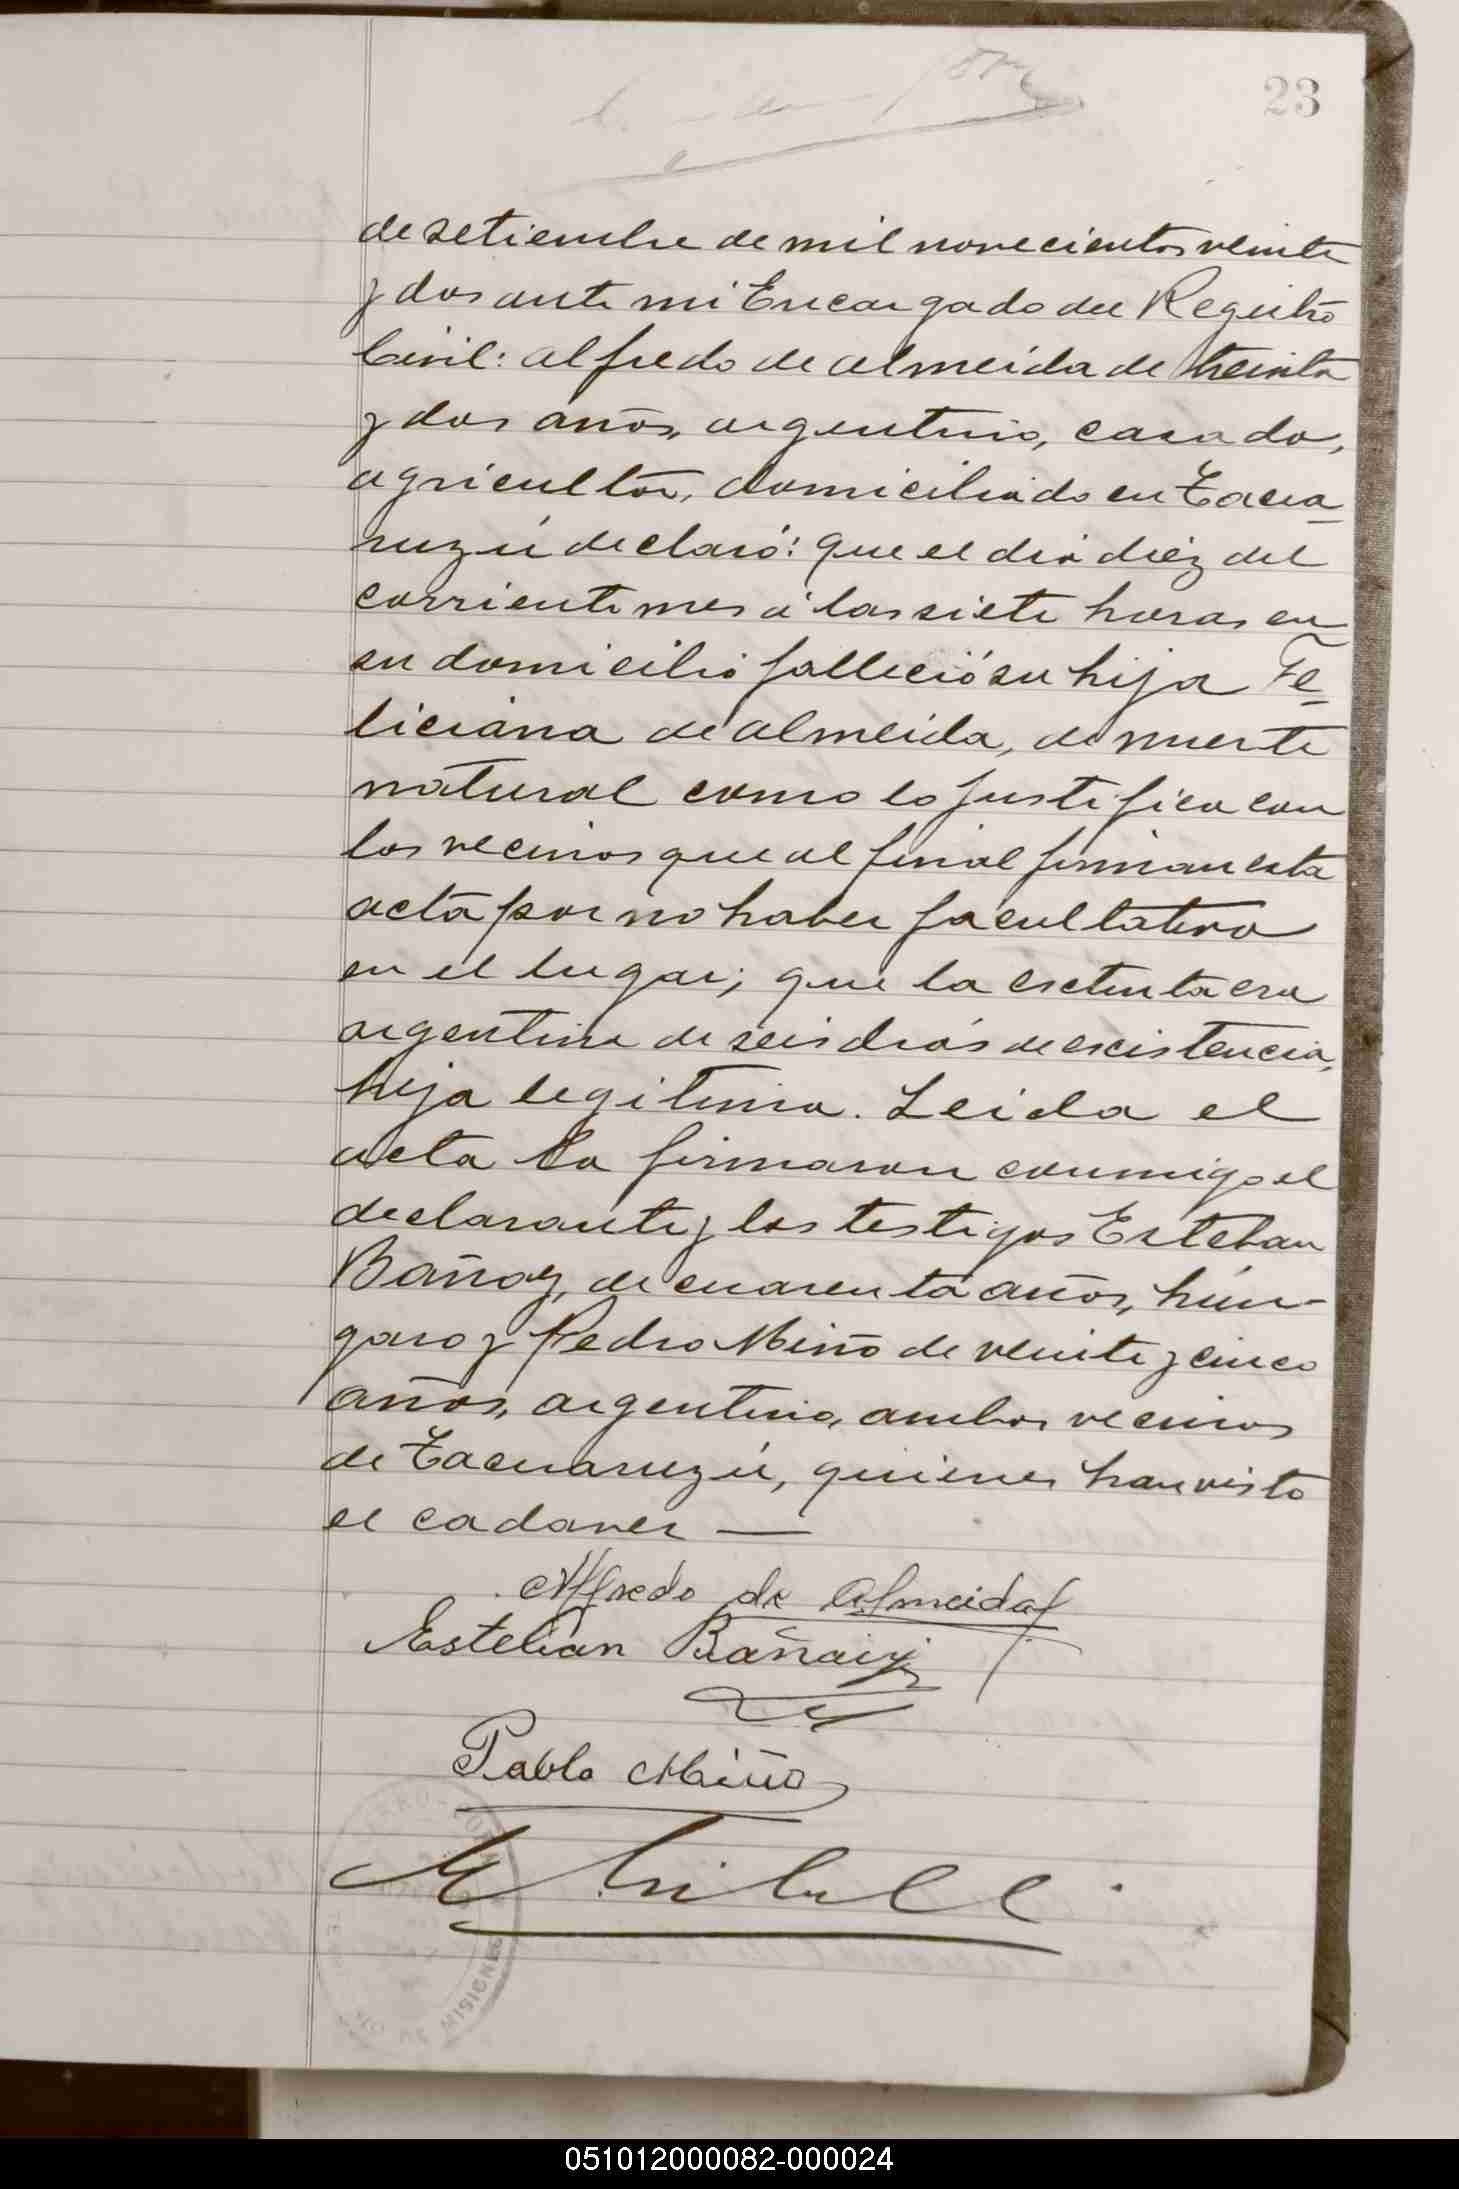 23
de setiembre de mil novecientos veinte
y dos ante mi Encargado del Registro
Civil: alfredo de almeida de treinta
y dos años, argentino, casado,
agricultor, domiciliado en Tacua-
ruzú declaró: que el dia diéz del
corriente mes á las siete horas en
su domicilio falleció su hija Fe=
liciana de almeida, de muerte
natural como lo justifica con
los vecinos que al final firman esta
acta por no haber facultativo
en el lugar; que la esctinta era
argentina de seis dias de escistencia,
hija legitima. Leida el
acta la firmaron conmigo el
declarante y los testigos Esteban
Bañay, de cuarenta años, hún-
garo y Pedro Miño de veinte y cinco
años, argentino, ambos vecinos
de Tacuaruzú, quienes han visto
el cadaver —
Alfredo de Almeida
Esteban Bañaiy
Pablo Miño
MISIONES
051012000082-000024